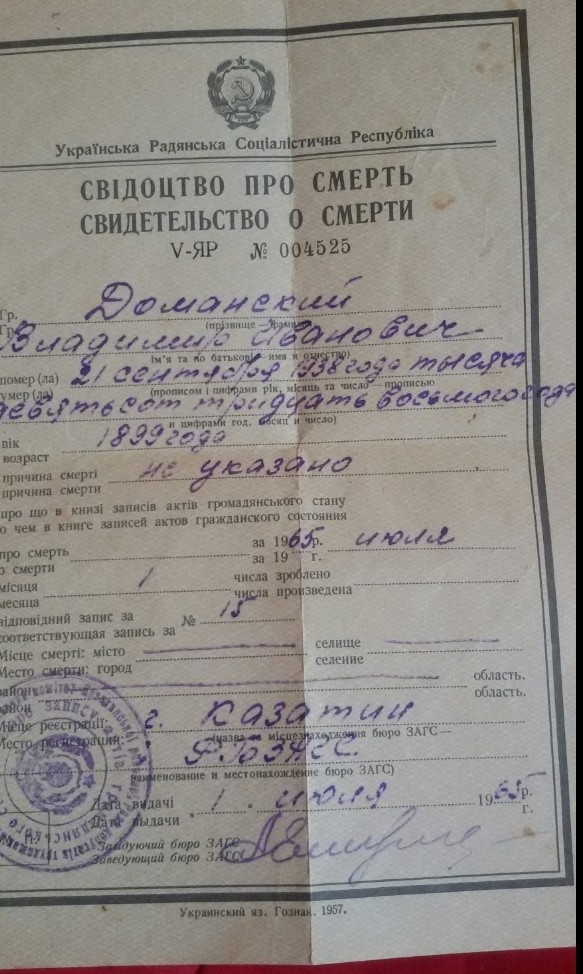 Українська Радянська Соціалістична Республіка
СВІДОЦТВО ПРО СМЕРТЬ
СВИДЕТЕЛЬСТВО О СМЕРТИ
V-ЯР № 004525
Гр. Доманский
Гр. (прізвище — фамилия)
Владимир Иванович
ім'я та по батькові — имя и отчество)
помер(ла) 21 сентября 1938 года тысяча
умер(ла) (прописом і цифрами рік, місяць та число — прописью
девятьсот тридцать восьмого года
и цифрами год, месяц и число)
вік 1899 года
возраст
причина смерті не указано
причина смерти
про що в книзі записів актів громадянського стану
о чем в книге записей актов гражданского состояния
про смерть за 1965 р. июля
о смерти за 19 г.
місяця 1 числа зроблено
месяца числа произведена
відповідний запис за № 15
соответствующая запись за
Місце смерті: місто селище
Место смерти: город селение
район область.
район область.
Місце реєстрації: г. Казатин
Место регистрации: (назва і місцезнаходження бюро ЗАГС —
наименование и местонахождение бюро ЗАГС)
Дата видачі 1 июля 1965 р.
Дата выдачи г.
Завідуючий бюро ЗАГС
Заведующий бюро ЗАГС
Украинский яз. Гознак. 1957.